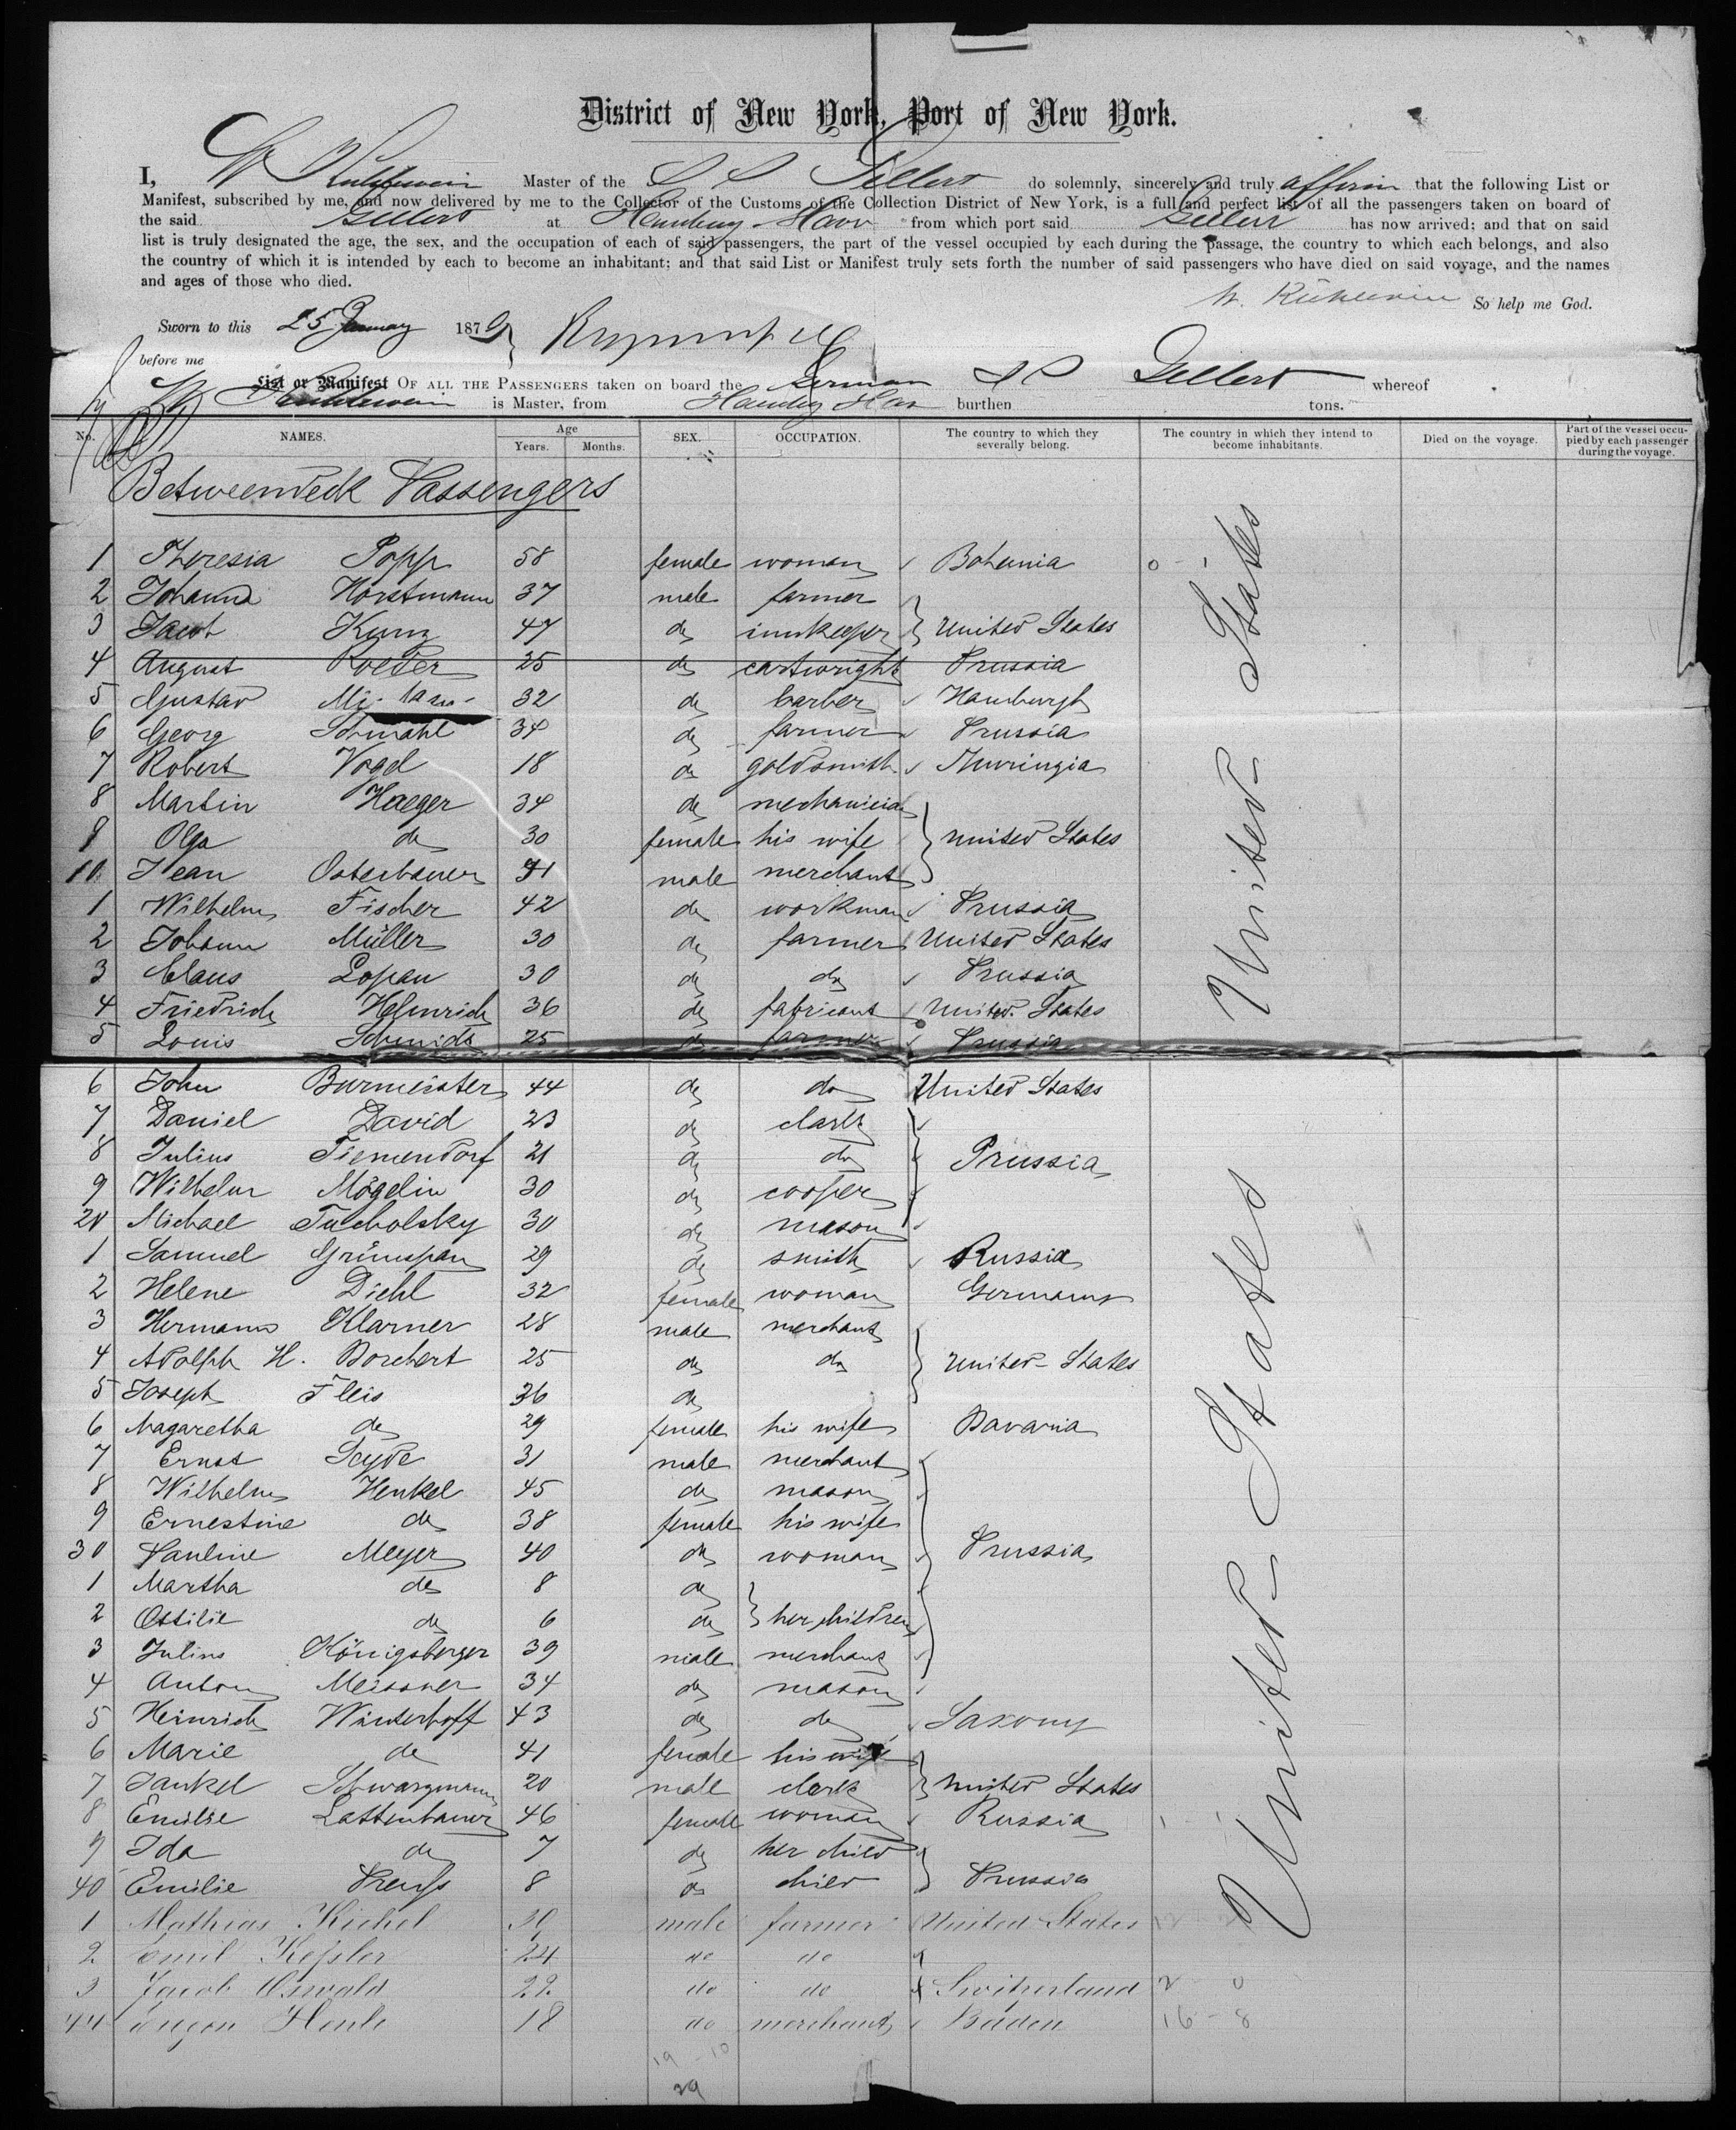 District of New York, Port of New York.
I, W Kuhlewein Master of the S S Gellert do solemnly, sincerely and truly affirm that the following List or
Manifest, subscribed by me, and now delivered by me to the Collector of the Customs of the Collection District of New York, is a full and perfect list of all the passengers taken on board of
the said Gellert at Hamburg Havr from which port said Gellert has now arrived; and that on said
list is truly designated the age, the sex, and the occupation of each of said passengers, the part of the vessel occupied by each during the passage, the country to which each belongs, and also
the country of which it is intended by each to become an inhabitant; and that said List or Manifest truly sets forth the number of said passengers who have died on said voyage, and the names
and ages of those who died.
W. Kühlewein So help me God.
Sworn to this 25 January 1879
before me
List or Manifest OF ALL THE PASSENGERS taken on board the German S S Gellert whereof
W Kuhlewein is Master, from Hamburg Havr burthen tons.
No. NAMES. Age Years. Months. SEX. OCCUPATION. The country to which they severally belong. The country in which they intend to become inhabitants. Died on the voyage. Part of the vessel occupied by each passenger during the voyage.
Betweendeck Passengers
1 Theresia Popp 58 female woman Bohemia
2 Johann Horstmann 37 male farmer
3 Jacob Kunz 47 do innkeeper United States
4 August Roeder 25 do cartwright Prussia
5 Gustav 32 do barber Hamburgh
6 Georg Schmahl 34 do farmer Prussia
7 Robert Vogel 18 do goldsmith Thuringia
8 Martin Haeger 34 do mechanician
9 Olga do 30 female his wife United States
10 Jean Osterbauer 31 male merchant
1 Wilhelm Fischer 42 do workman Prussia
2 Johann Müller 30 do farmer United States
3 Claus Lopau 30 do do Prussia
4 Friedrich Helmrich 36 do fabricant United States
5 Louis Schmidt 25 do farmer Prussia
6 John Burmeister 44 do do United States
7 Daniel David 23 do clark
8 Julius Tiemendorf 21 do do Prussia
9 Wilhelm Mögelin 30 do cooper
20 Michael Tucholsky 30 do mason
1 Samuel Grünspan 29 do smith Russia
2 Helene Diehl 32 female woman Germany
3 Hermann Klarner 28 male merchant
4 Adolph H. Borchert 25 do do United States
5 Joseph Fleis 36 do
6 Magaretha do 29 female his wife Bavaria
7 Ernst Seyde 31 male merchant
8 Wilhelm Henkel 45 do mason
9 Ernestine do 38 female his wife
30 Pauline Meyer 40 do woman Prussia
1 Martha do 8 do
2 Ottilie do 6 do her children
3 Julius Königsberger 39 male merchant
4 Anton Meissner 34 do mason
5 Heinrich Winterhoff 43 do do Saxony
6 Marie do 41 female his wife
7 Jankel Schwarzmann 20 male clark United States
8 Emilie Lattenbauer 46 female woman Russia
9 Ida do 7 do her child
40 Emilie 8 do child Prussia
1 Mathias Kichel 30 male farmer United States
2 Emil Kessler 24 do do
3 Jacob Oswald 22 do do Switzerland 2 0
44 Eugen Henle 18 do merchant Baden 16 - 8
19 - 10
29
United States
United States